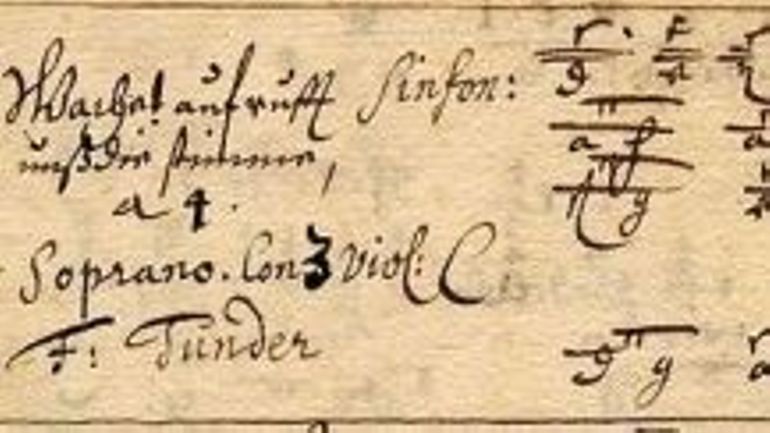 Wachet auf rufft Sinfon:
unß die stimme,
a 4.
Soprano. Con 3 viol: C
F: Tunder